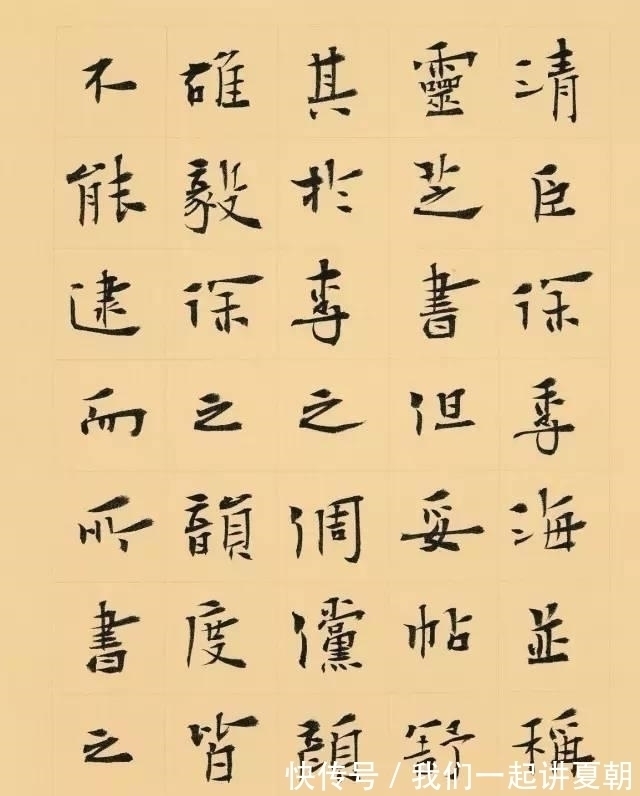 清臣徐季海並稱
靈芝書但妥帖舒
其於李之倜儻顏
雄毅徐之韻度皆
不能逮而所書之
快传号/我们一起讲夏朝